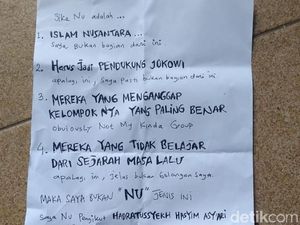 Jika NU adalah...
1. ISLAM NUSANTARA...
Saya Bukan bagian dari ini
2. Harus Jadi PENDUKUNG JOKOWI
apalagi ini, Saya Pasti bukan bagian dari ini
3 MEREKA YANG MENGANGGAP
KELOMPOK NYA YANG PALING BENAR
obviously Not My Kinda Group
4. MEREKA YANG TIDAK BELAJAR
DARI SEJARAH MASA LALU
apalagi, ini, jelas bukan Golongan Saya.
MAKA SAYA BUKAN "NU" JENIS INI
Saya NU Pengikut HADRATUSSYEKH HASYIM ASYARI
detikcom